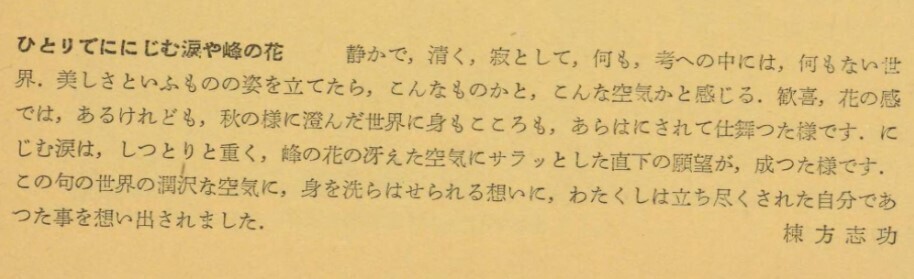 ひとりでににじむ涙や峰の花　　静かで，清く，寂として，何も，考への中には，何もない世
界．美しさといふものの姿を立てたら，こんなものかと，こんな空気かと感じる．歓喜，花の感
では，あるけれども，秋の様に澄んだ世界に身もこころも，あらはにされて仕舞つた様です．に
じむ涙は，しつとりと重く，峰の花の冴えた空気にサラッとした直下の願望が，成つた様です．
この句の世界の潤沢な空気に，身を洗らはせられる想いに，わたくしは立ち尽くされた自分であ
つた事を想い出されました．
棟方志功